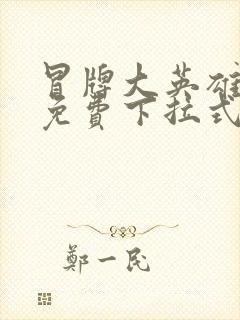 冒牌大英雄
免費下拉式
鄭一民